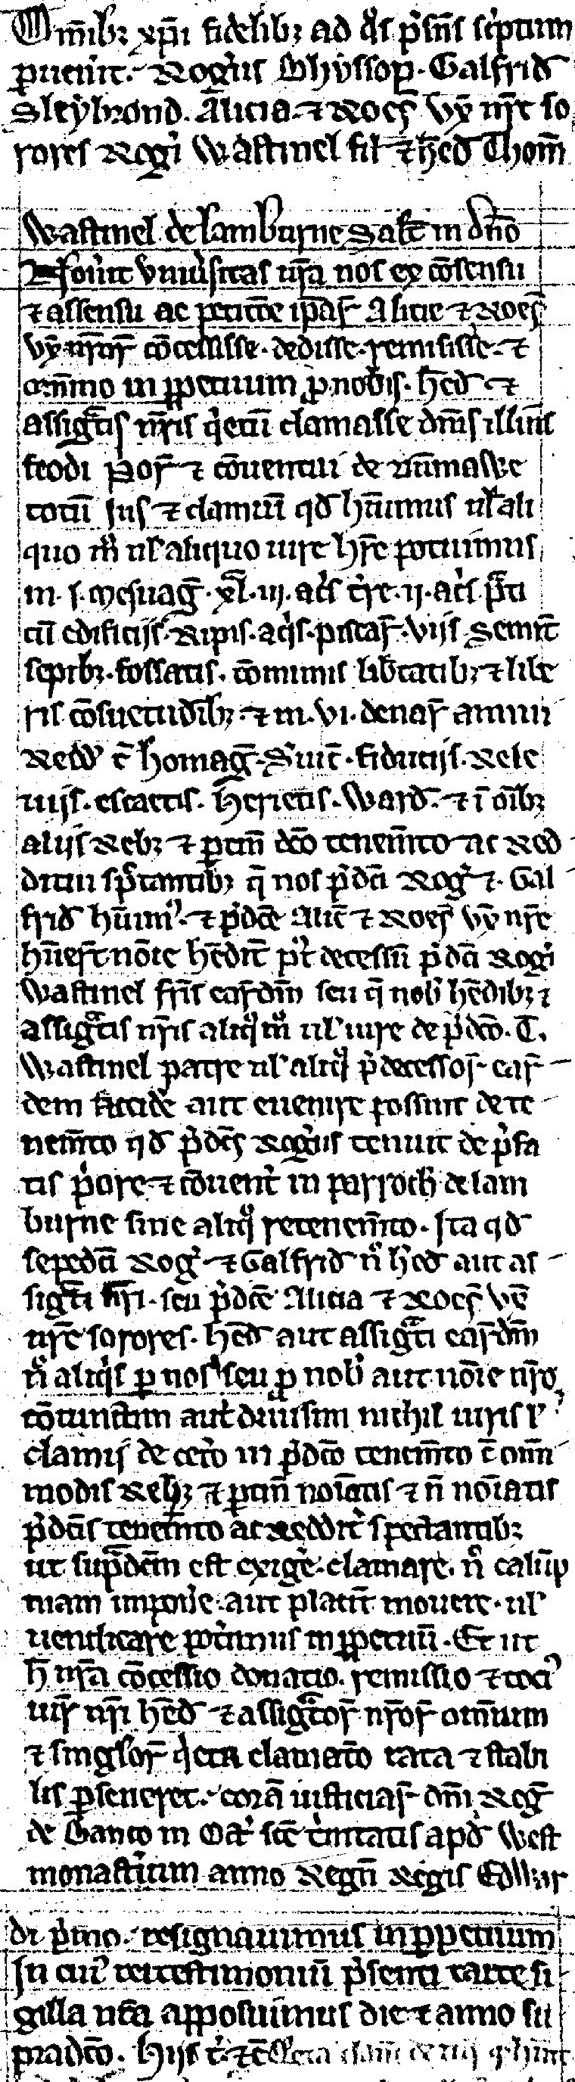 Om̄ibꝫ xp̄i fidelibꝫ ad q̄s p̄sn̄s sc̄ptum
puen̄it. Rog̃us Bhyssop. Galfrid̄
Sleybrond. Alicia ⁊ Roeỹ vx̄ nr̄e so
rores Rogi Wastinel fil̄ ⁊ h̄ed Thom̄
Wastinel de lamburne Sal̄t in dn̄o
Nou̓it vniu̓sitas ur̄a nos ex cōsensu
⁊ assensu ac peticōe ip̄aꝝ Alicie ⁊ Roeỹ
vx̄ nr̄aꝝ cōcessisse. dedisse. remisisse. ⁊
om̄ino in ꝑpetuum ꝓ nobis. h̄ed ⁊
assigtis nr̄is q̓etū clamasse dn̄is illius
feodi Poꝝ ⁊ cōuentui de
totū Jus ⁊ clamiū qd̄ h̄uimus ul̓ ali
quo m̄ ul̓ aliquo iure h̄re potuimus
in .j. mesuag̃. xl̄.iij. ac̓s t̓re .ij. ac̓s p̓ti
cū edificijs. Ripis. aq̓is. piscar̃. viis Semit̄
sepibꝫ. fossatis. cōmunis lib̓tatibꝫ ⁊ libe
ris cōsuetudībꝫ. ⁊ in .vi. denar̃ annui
Redd̄ c̄ homag̃. Seruit̄. fiducijs. Rele
uijs. escaetis. Herietis. Ward̄. ⁊ ī oībꝫ
alijs Rebꝫ ⁊ ꝑtin̄ dc̄o tenem̄to ac Red
ditui spc̄tantibꝫ q̄ nos p̓dc̄i Rog̃ ⁊ Gal
frid̄ h̄uim̓. ⁊ p̓dc̄e Alic̄ ⁊ Roeỹ vx̄ nr̄e
h̄uer̄t nōie h̄edit̄ p̓t decessū p̓dc̄i Rogi
Wastinel fr̄is eaꝝdm̄ seu q̄ nob̓ h̄edibꝫ ⁊
assigtis nr̄is aliq̊ m̊ ul̓ iure de p̓dc̄o. T.
Wastinel patre ul̓ aliq̊ p̓decessoꝝ eaꝝ
dem accide̓ aut euenire possunt de te
nem̄to qd̄ p̓dc̄s Rog̃us tenuit de p̓fa
tis p̓ore ⁊ cōuent̓ in parroch̄ de lam
burne sine aliq̊ retenem̄to. Ita qd̄
sepedc̄i Rog̃ ⁊ Galfrid̄ n̄ h̄ed aut as
sigti nr̄i. seu p̓dc̄e Alicia ⁊ Roeỹ vx̄
nr̄e sorores. h̄ed aut assigti eaꝝdm̄
n̄ aliq̓s ꝑ nos seu ꝓ nob̓ aut nōie nr̄o
cōiunctim aut diuisim nichil iuris ul̓
clamij de cet̓o in p̓dc̄o tenem̄to c̄ om̄
modis Rebꝫ ⁊ ꝑtin̄ noīatis ⁊ n̄ noīatis
p̓dc̄is tenem̄to ac Reddit̄ spectantibꝫ
ut sup̓dc̄m est exige̓. clamare. n̄ calūp
niam impone̓. aut placit̄ mouere. ul̓
uendicare pot̓imus in ꝑpetuū. Et ut
h̄ nr̄a cōcessio donatio. remissio ⁊ toci̓
iur̃ nr̄i h̄ed ⁊ assigtoꝝ nr̄oꝝ omium
⁊ singloꝝ q̓eta clamatō rata ⁊ stabi
lis ꝑseueret. corā iusticiaꝝ dn̄i Reg̃
de Banco in Oct̓ sc̄e t̓nitatis apd̄ West
monast̓ium anno Regn̄ Regis Edwar
di p̓mo. resignauimus in ꝑpetuum
In cui̓ rei testimoniū p̓senti carte si
gilla nr̄a apposuimus die ⁊ anno su
pradc̄o. Hijs t̓. ⁊c̄